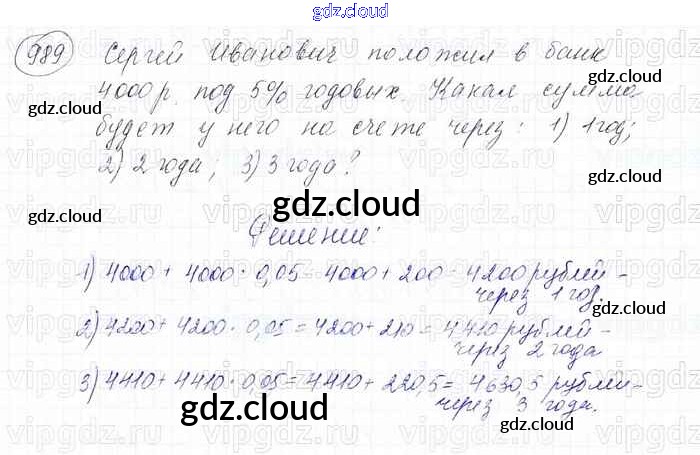 gdz.cloud
989 Сергей Иванович положил в банк
4000 р. под 5% годовых. Какая сумма
будет у него на счете через: 1) 1 год;
2) 2 года; 3) 3 года?
gdz.cloud
gdz.cloud
gdz.cloud
gdz.cloud
gdz.cloud
gdz.cloud
Решение:
1) 4000 + 4000 · 0,05 = 4000 + 200 = 4200 рублей -
через 1 год.
2) 4200 + 4200 · 0,05 = 4200 + 210 = 4410 рублей -
через 2 года
3) 4410 + 4410 · 0,05 = 4410 + 220,5 = 4630,5 рублей -
через 3 года.
gdz.cloud
gdz.cloud
gdz.cloud